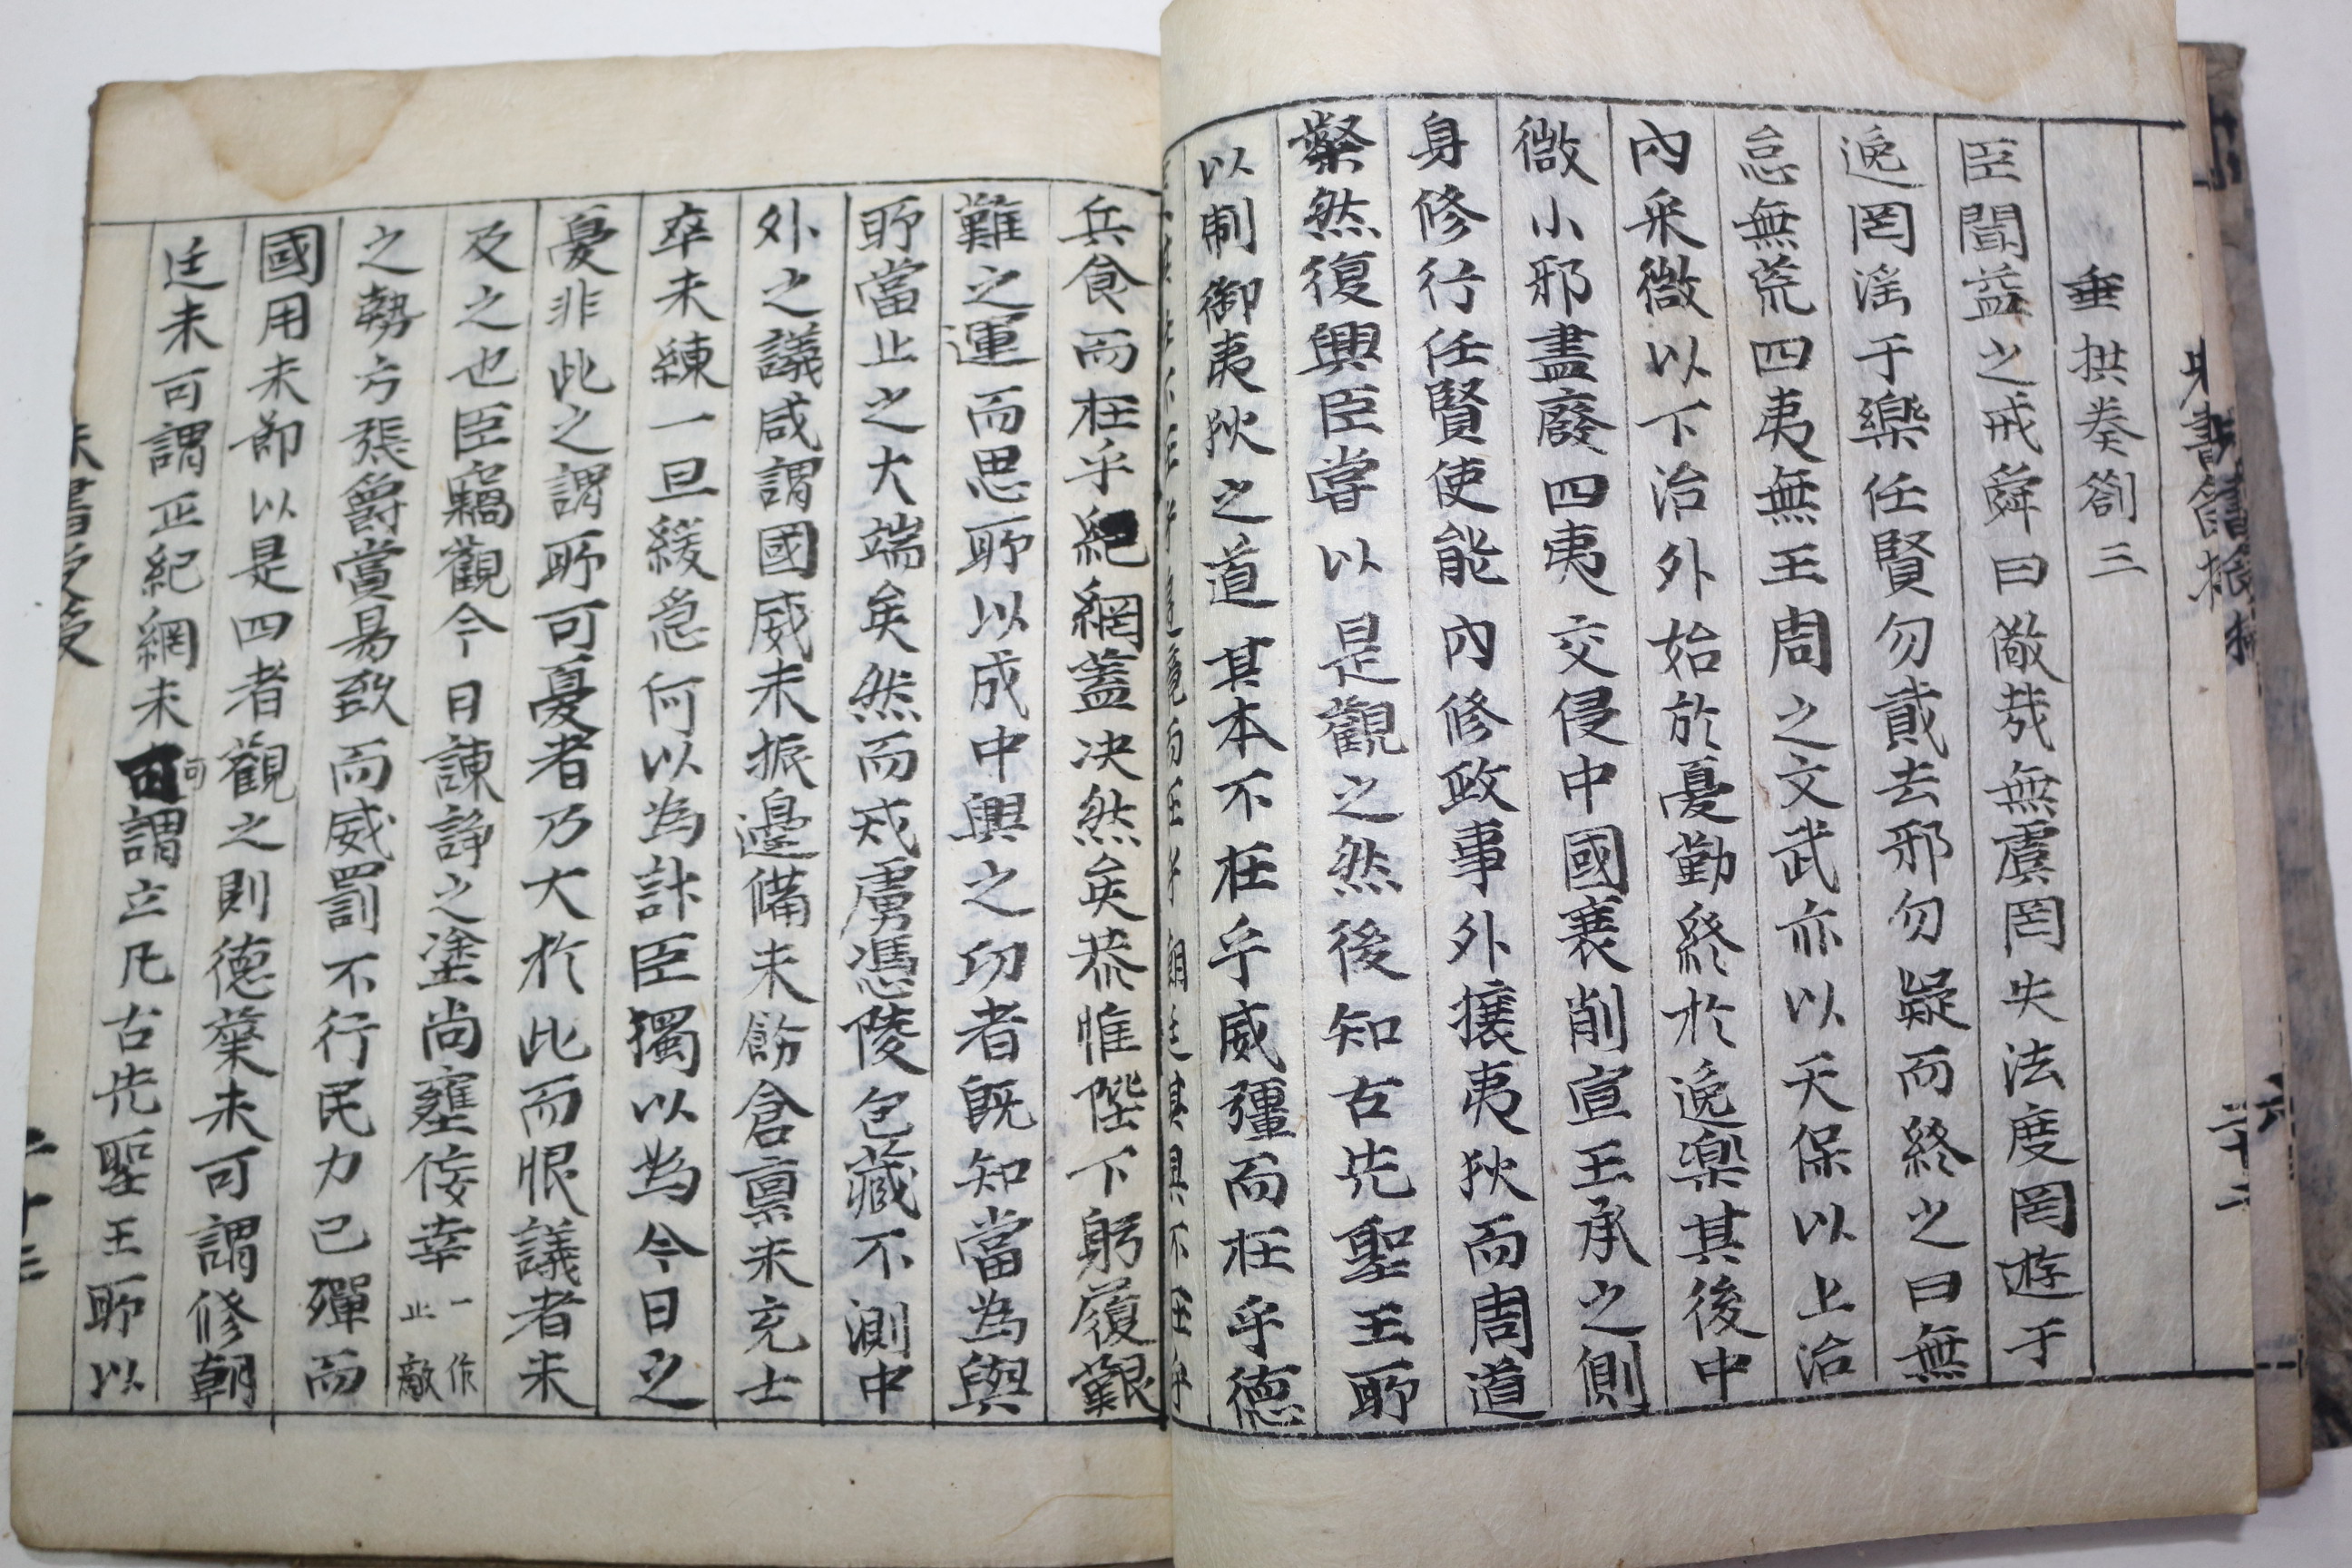 垂拱奏箚三
臣聞益之戒舜曰儆㢤無虞罔失法度罔遊于
逸罔滛于樂任賢勿貳去邪勿疑而終之曰無
怠無荒四夷無王周之文武亦以天保以上治
內采微以下治外始於憂勤終於逸樂其後中
微小邪盡廢四夷交侵中國衰削宣王承之側
身修行任賢使能內修政事外攘夷狄而周道
粲然復興臣嘗以是觀之然後知古先聖王所
以制御夷狄之道其本不在乎威彊而在乎德
其具不在乎
兵食而在乎紀網蓋决然矣恭惟陛下躬履艱
難之運而思所以成中興之功者旣知當為與
所當止之大端矣然而戎虜憑陵包藏不測中
外之議咸謂國威未振邉備未飭倉禀未充士
卒未練一旦緩急何以為計臣獨以為今日之
憂非此之謂所可憂者乃大於此而恨議者未
及之也臣竊觀今日諫諍之塗尚壅侫幸一作止敵
之勢方張爵賞易致而威罰不行民力已殫而
國用未節以是四者觀之則德業未可謂修朝
廷未可謂正紀網未可謂立凡古先聖王所以
二十三